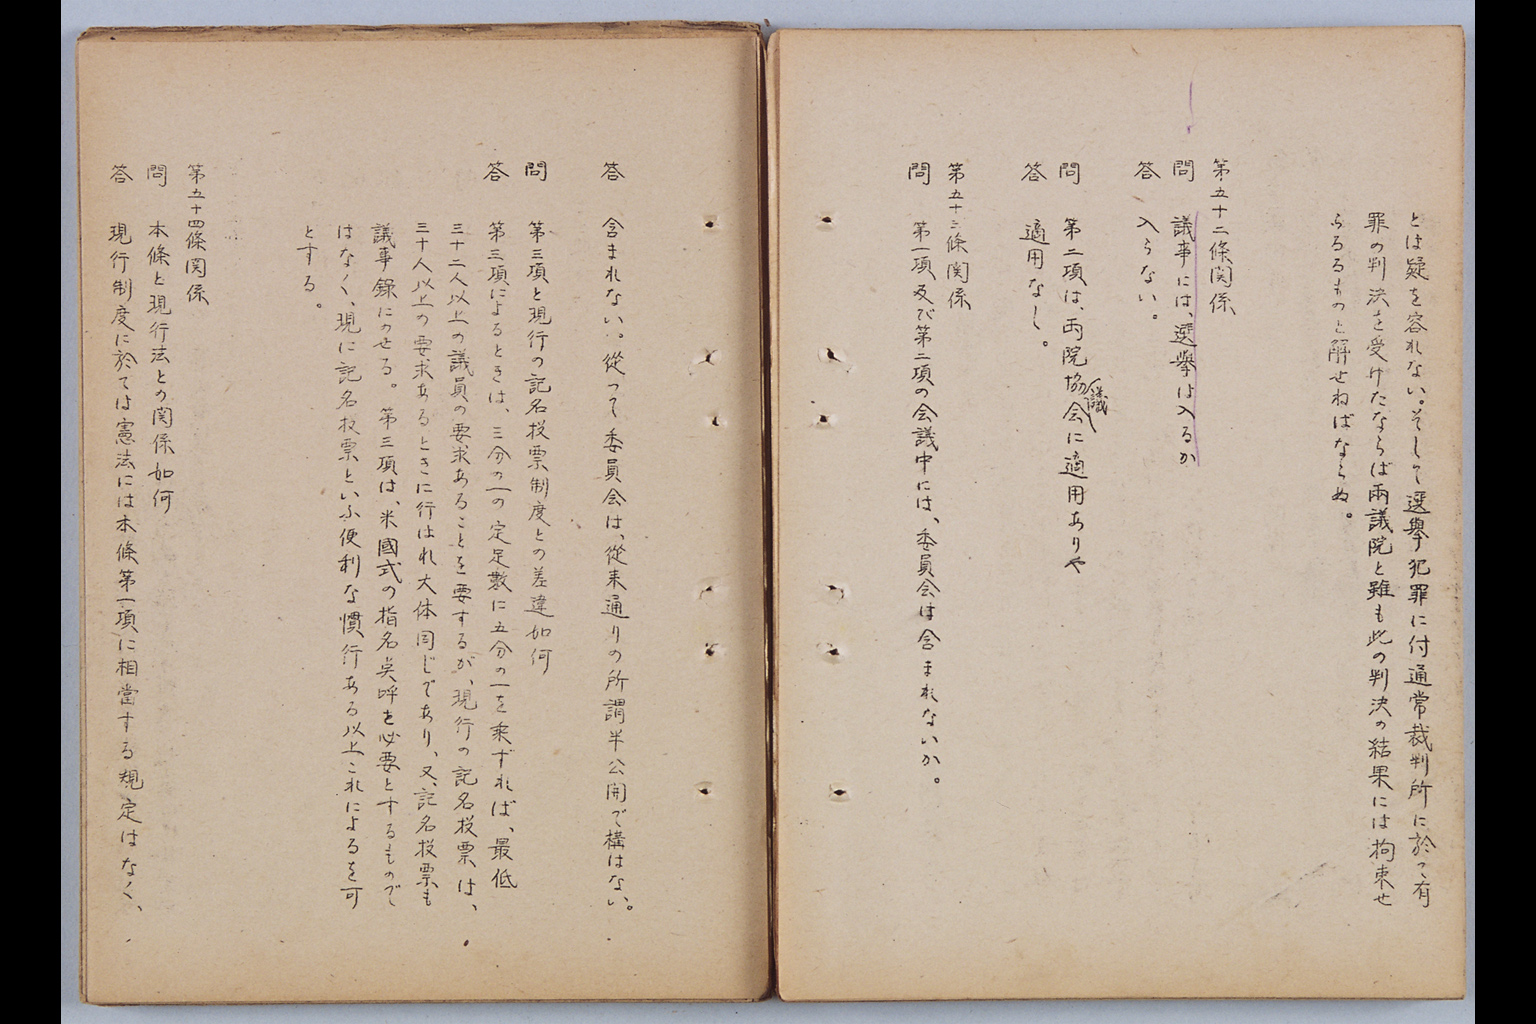 とは疑を容れない。そして選擧犯罪に付通常裁判所に於て有
罪の判決を受けたならば兩議院と雖も此の判決の結果には拘束せ
らるるものと解せねばならぬ。
第五十二條関係
問　議事には、選擧は入るか
答　入らない。
問　第二項は、両院協議会に適用ありや
答　適用なし。
第五十三條関係
問　第一項及び第二項の会議中には、委員会は含まれないか。
答　含まれない。從つて委員会は、從来通りの所謂半公開で構はない。
問　第三項と現行の記名投票制度との差違如何
答　第三項によるときは、三分の一の定足數に五分の一を乘ずれば、最低
三十二人以上の議員の要求あることを要するが、現行の記名投票は、
三十人以上の要求あるときに行はれ大体同じであり、又、記名投票も
議事録にのせる。第三項は、米國式の指名点呼を必要とするもので
はなく、現に記名投票といふ便利な慣行ある以上これによるを可
とする。
第五十四條関係
問　本條と現行法との関係如何
答　現行制度に於ては憲法には本條第一項に相當する規定はなく、